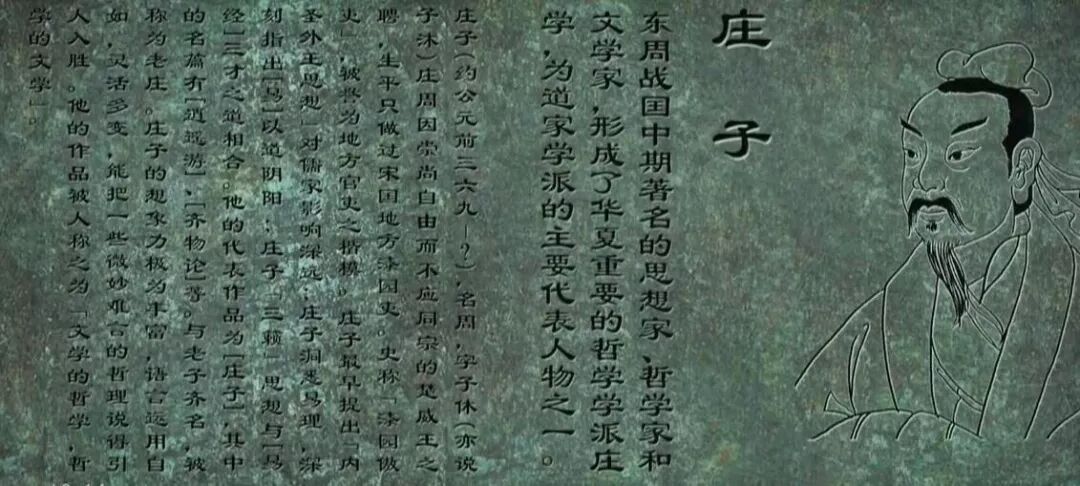 庄子
东周战国中期著名的思想家、哲学家和
文学家，形成了华夏重要的哲学学派庄
学，为道家学派的主要代表人物之一。
庄子（约公元前三六九－？），名周，字子休（亦说
子沐）庄周因崇尚自由而不应同宗的楚威王之
聘，生平只做过宋国地方漆园吏。史称「漆园傲
吏」，被誉为地方官吏之楷模。庄子最早提出「内
圣外王思想」对儒家影响深远；庄子洞悉易理，深
刻指出「易」以道阴阳；庄子「三籁」思想与「易
经」三才之道相合。他的代表作品为「庄子」，其中
的名篇有「逍遥游」、「齐物论」等。与老子齐名，被
称为老庄。庄子的想象力极为丰富，语言运用自
如，灵活多变，能把一些微妙难言的哲理说得引
人入胜。他的作品被人称之为「文学的哲学，哲
学的文学」。